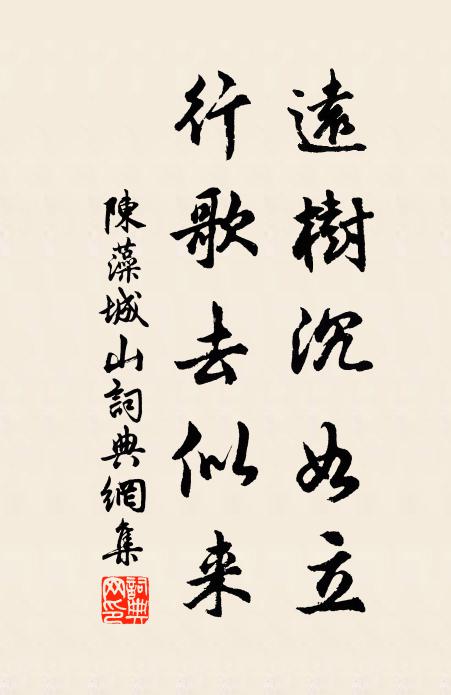 遠樹沉如立
行歌去似来
陳藻城山詞典網集
詞典網印